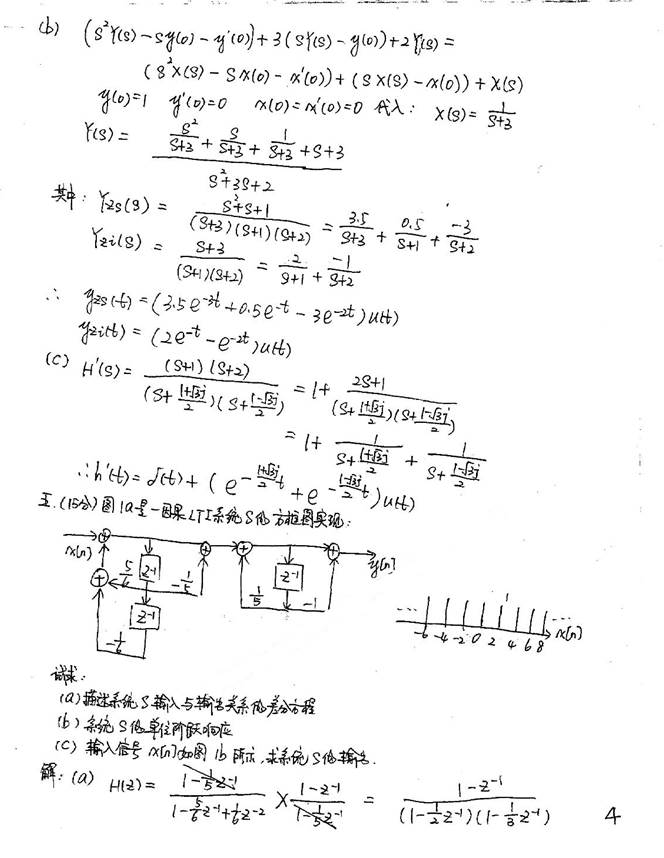 (b) (s²Y(s)-sy(0)-y'(0))+3(sY(s)-y(0))+2Y(s)=
(s²X(s)-sx(0)-x'(0))+(sX(s)-x(0))+X(s)
y(0)=1 y'(0)=0 x(0)=x'(0)=0 代入: X(s)=1/(s+3)
Y(s)= (s²/(s+3) + s/(s+3) + 1/(s+3) + s+3)/(s²+3s+2)
其中: Yzs(s) = (s²+s+1)/((s+3)(s+1)(s+2)) = 3.5/(s+3) + 0.5/(s+1) + -3/(s+2)
Yzi(s) = (s+3)/((s+1)(s+2)) = 2/(s+1) + -1/(s+2)
∴ yzs(t)=(3.5e^{-3t}+0.5e^{-t}-3e^{-2t})u(t)
yzi(t)=(2e^{-t}-e^{-2t})u(t)
(c) H'(s)= (s+1)(s+2)/((s+(1+√3j)/2)(s+(1-√3j)/2)) = 1+ (2s+1)/((s+(1+√3j)/2)(s+(1-√3j)/2))
= 1+ 1/(s+(1+√3j)/2) + 1/(s+(1-√3j)/2)
∴h'(t)=δ(t)+(e^{-(1+√3j)/2 t}+e^{-(1-√3j)/2 t})u(t)
五.(15分)图1a是一因果LTI系统S的方框图实现:
x[n] + + + + y[n]
+ 5/6 z⁻¹ -1/5 1/5 z⁻¹ -1
-1/6 z⁻¹
1
... ...
-6 -4 -2 0 2 4 6 8 x[n]
试求:
(a)描述系统S输入与输出关系的差分方程
(b)系统S的单位阶跃响应
(c)输入信号x[n]如图1b所示,求系统S的输出.
解:(a) H(z)= (1-1/5z⁻¹)/(1-5/6z⁻¹+1/6z⁻²) × (1-z⁻¹)/(1-1/5z⁻¹) = (1-z⁻¹)/((1-1/2z⁻¹)(1-1/3z⁻¹))
4